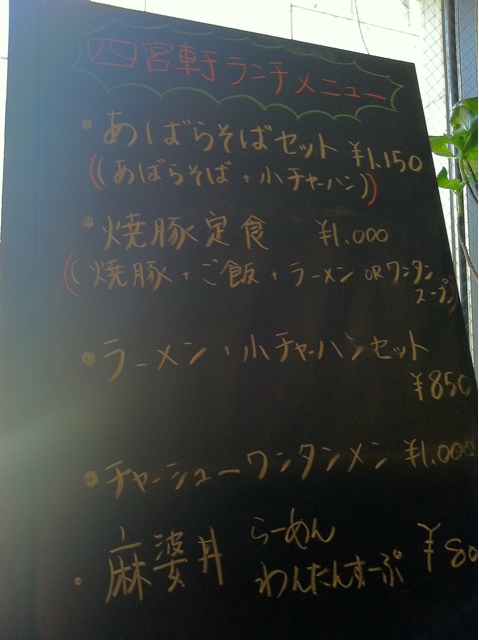 四宮軒ランチメニュー
・あばらそばセット ¥1,150
((あばらそば+小チャーハン))
・焼豚定食 ¥1.000
((焼豚+ご飯+ラーメン ORワンタン
スープ))
・ラーメン+小チャーハンセット
¥850
・チャーシューワンタンメン ¥1.00
らーめん
・麻婆丼 わんたんすーぷ ¥80